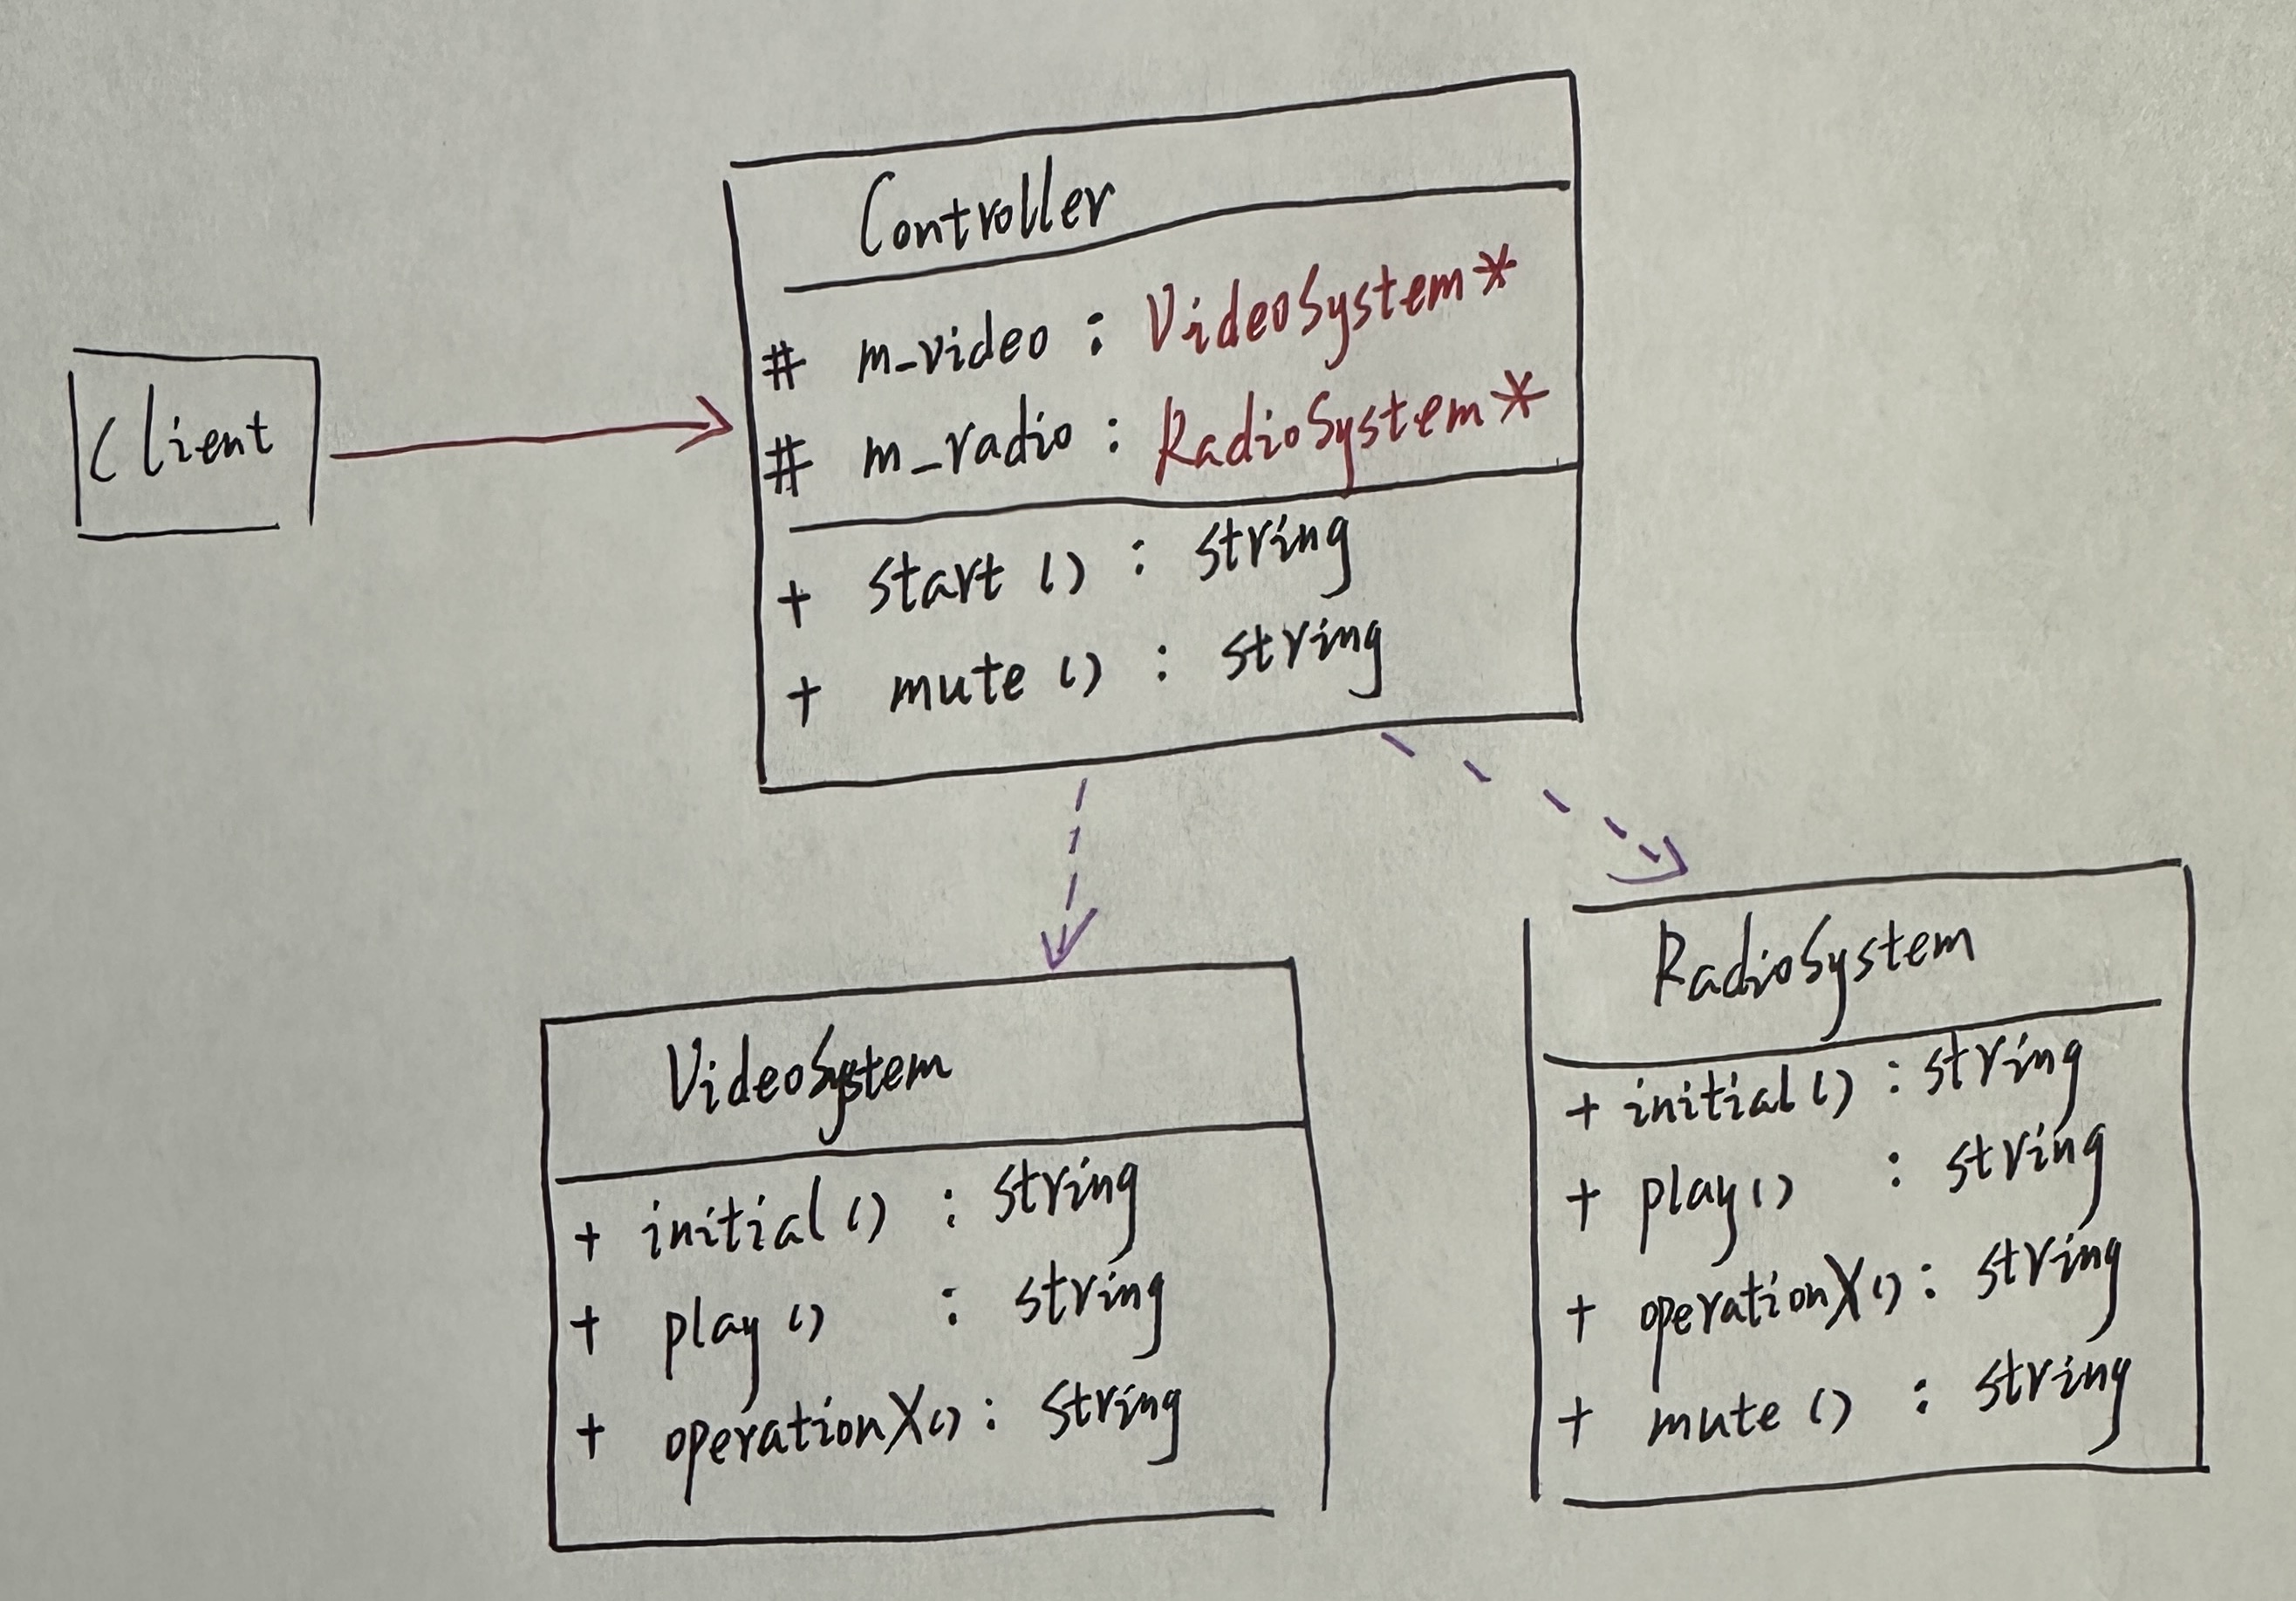 Controller
# m_video : VideoSystem*
# m_radio : RadioSystem*
+ start () : string
+ mute () : string
Client
VideoSystem
+ initial () : string
+ play () : string
+ operationX() : string
RadioSystem
+ initial () : string
+ play () : string
+ operationX() : string
+ mute () : string